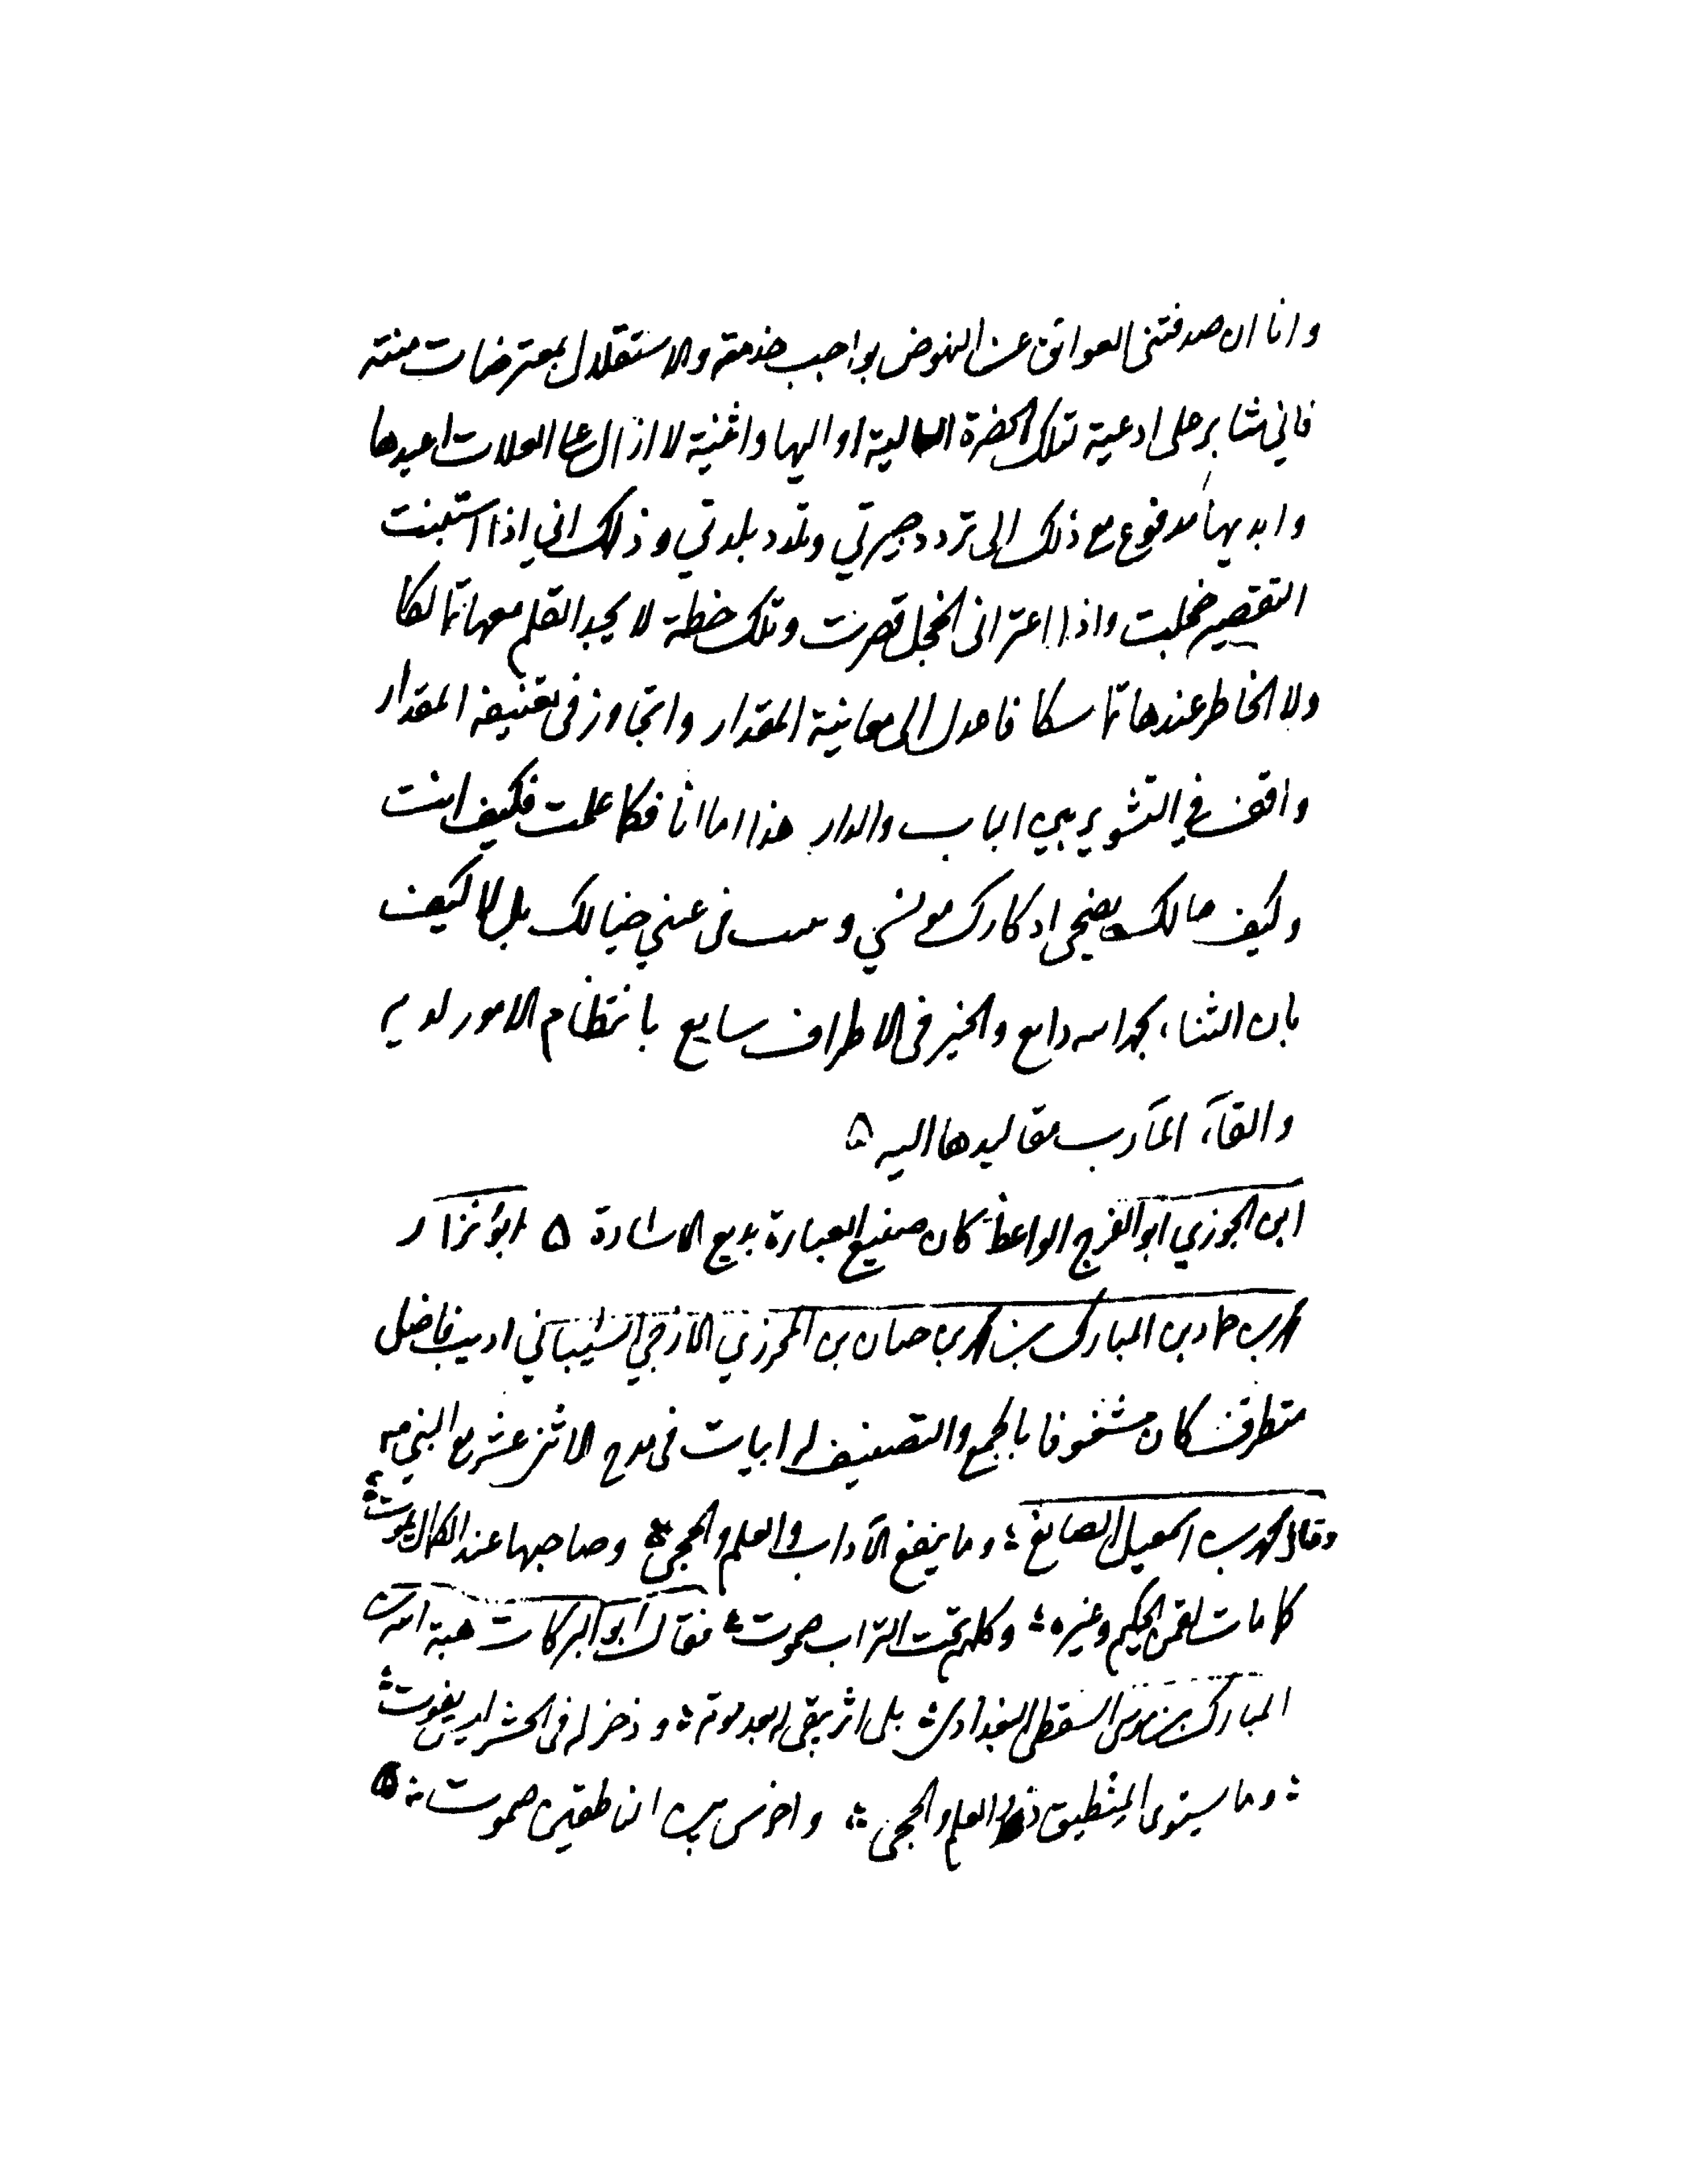 وانا ان صدفتنى العوائق عن النهوض بواجب خدمته والاستقلال بمعترضات منته
فاني مثابر على ادعية تلك الحضرة العالية اواليها واثنية لا ازال على العلات اعيدها
وابديها مدفوع مع ذلك الى تردد حيرتي وتلدد بلدتي وذلك اني اذا استبنت
التقصير خجلت واذا اعترانى الخجل قصرت وتلك خطة لا يجد القلم معها تمالكا
ولا الخاطر عندها تماسكا فاعدل الى معاينة المقدار واتجاوز فى تعنيفه المقدار
واقف في التشوير بين الباب والدار هذا اما انا فكما علمت فكيف انت
وكيف حالك يضحى ادكارك مونسي و فى عيني خيالك بل لا كيف
بان الثناء بحمد الله ذايع والخبر فى الاطراف سايع بانتظام الامور لديه
والقآء المآرب مقاليدها اليه ۵
ابن الجوزي ابو الفرج الواعظ كان صنيع العبارة بديع الاشارة ۵ ابو نزار
محمد بن حماد بن المبارك بن محمد بن حسان بن المحرزي الازجي الشيباني اديب فاضل
متطرف كان مشغوفا بالجمع والتصنيف له ابيات فى مدح الاثنى عشر مع النبي
وقال محمد بن اسمعيل الصايغ وما ينفع الآداب والعلم والحجى وصاحبها عند الكمال يموت
كما مات لقمن الحكيم وغيره وكلهم تحت التراب صموت فقال ابو البركات هبة الله بن
المبارك بن موسى السقطى البغدادى بل اثر يبقى له بعد موته وذخر له فى الحشر ليس يفوت
وما يستوى المنطيق ذو العلم والحجى واخرس بين الناطقين صموت ۵